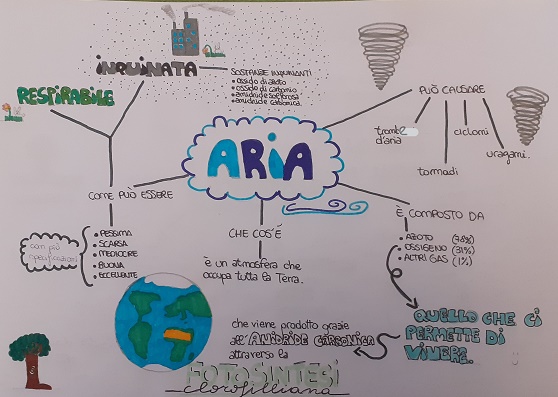 INQUINATA
SOSTANZE INQUINANTI
• ossido di azoto
• ossido di carbonio
• anidride solforosa
• anidride carbonica
RESPIRABILE
PUÒ CAUSARE
trombe
d'aria
tornadi
cicloni
uragani.
ARIA
COME PUÒ ESSERE
• PESSIMA
• SCARSA
• MEDIOCRE
• BUONA
• ECCELLENTE
con più
specificazioni
CHE COS'É
è un atmosfera che
occupa tutta la Terra.
È COMPOSTO DA
• AZOTO (78%)
• OSSIGENO (21%)
• ALTRI GAS (1%)
QUELLO CHE CI
PERMETTE DI
VIVERE.
che viene prodotto grazie
all'ANIDRIDE CARBONICA
attraverso la
FOTOSINTESI
clorofilliana